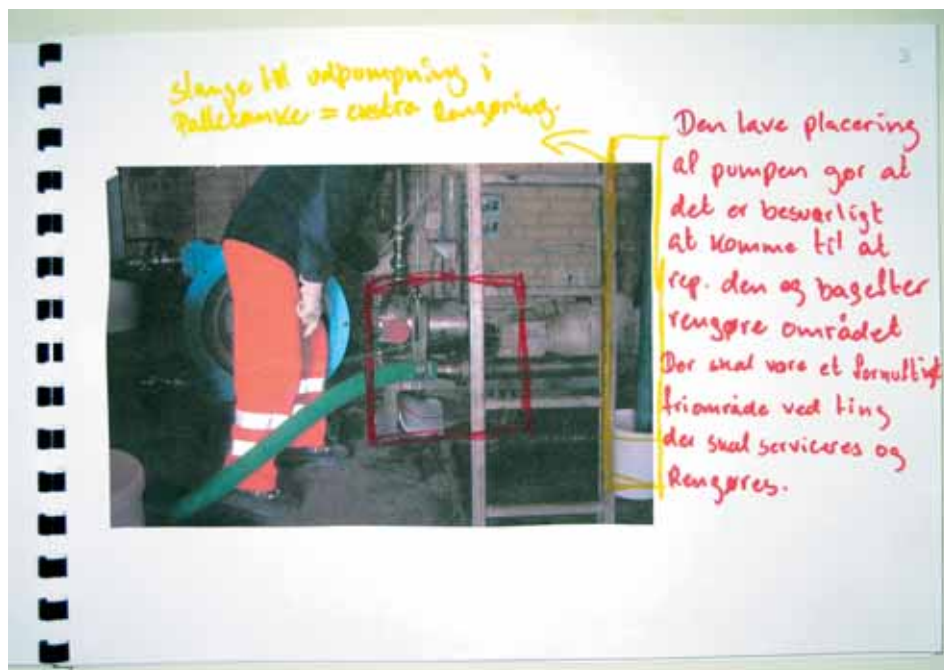 3
slange til udpumpning i
Palletanke = exstra Rengøring.
Den lave placering
af pumpen gør at
det er besværligt
at komme til at
rep. den og bagefter
rengøre området
Der skal være et fornuftigt
friområde ved ting
der skal serviceres og
Rengøres.